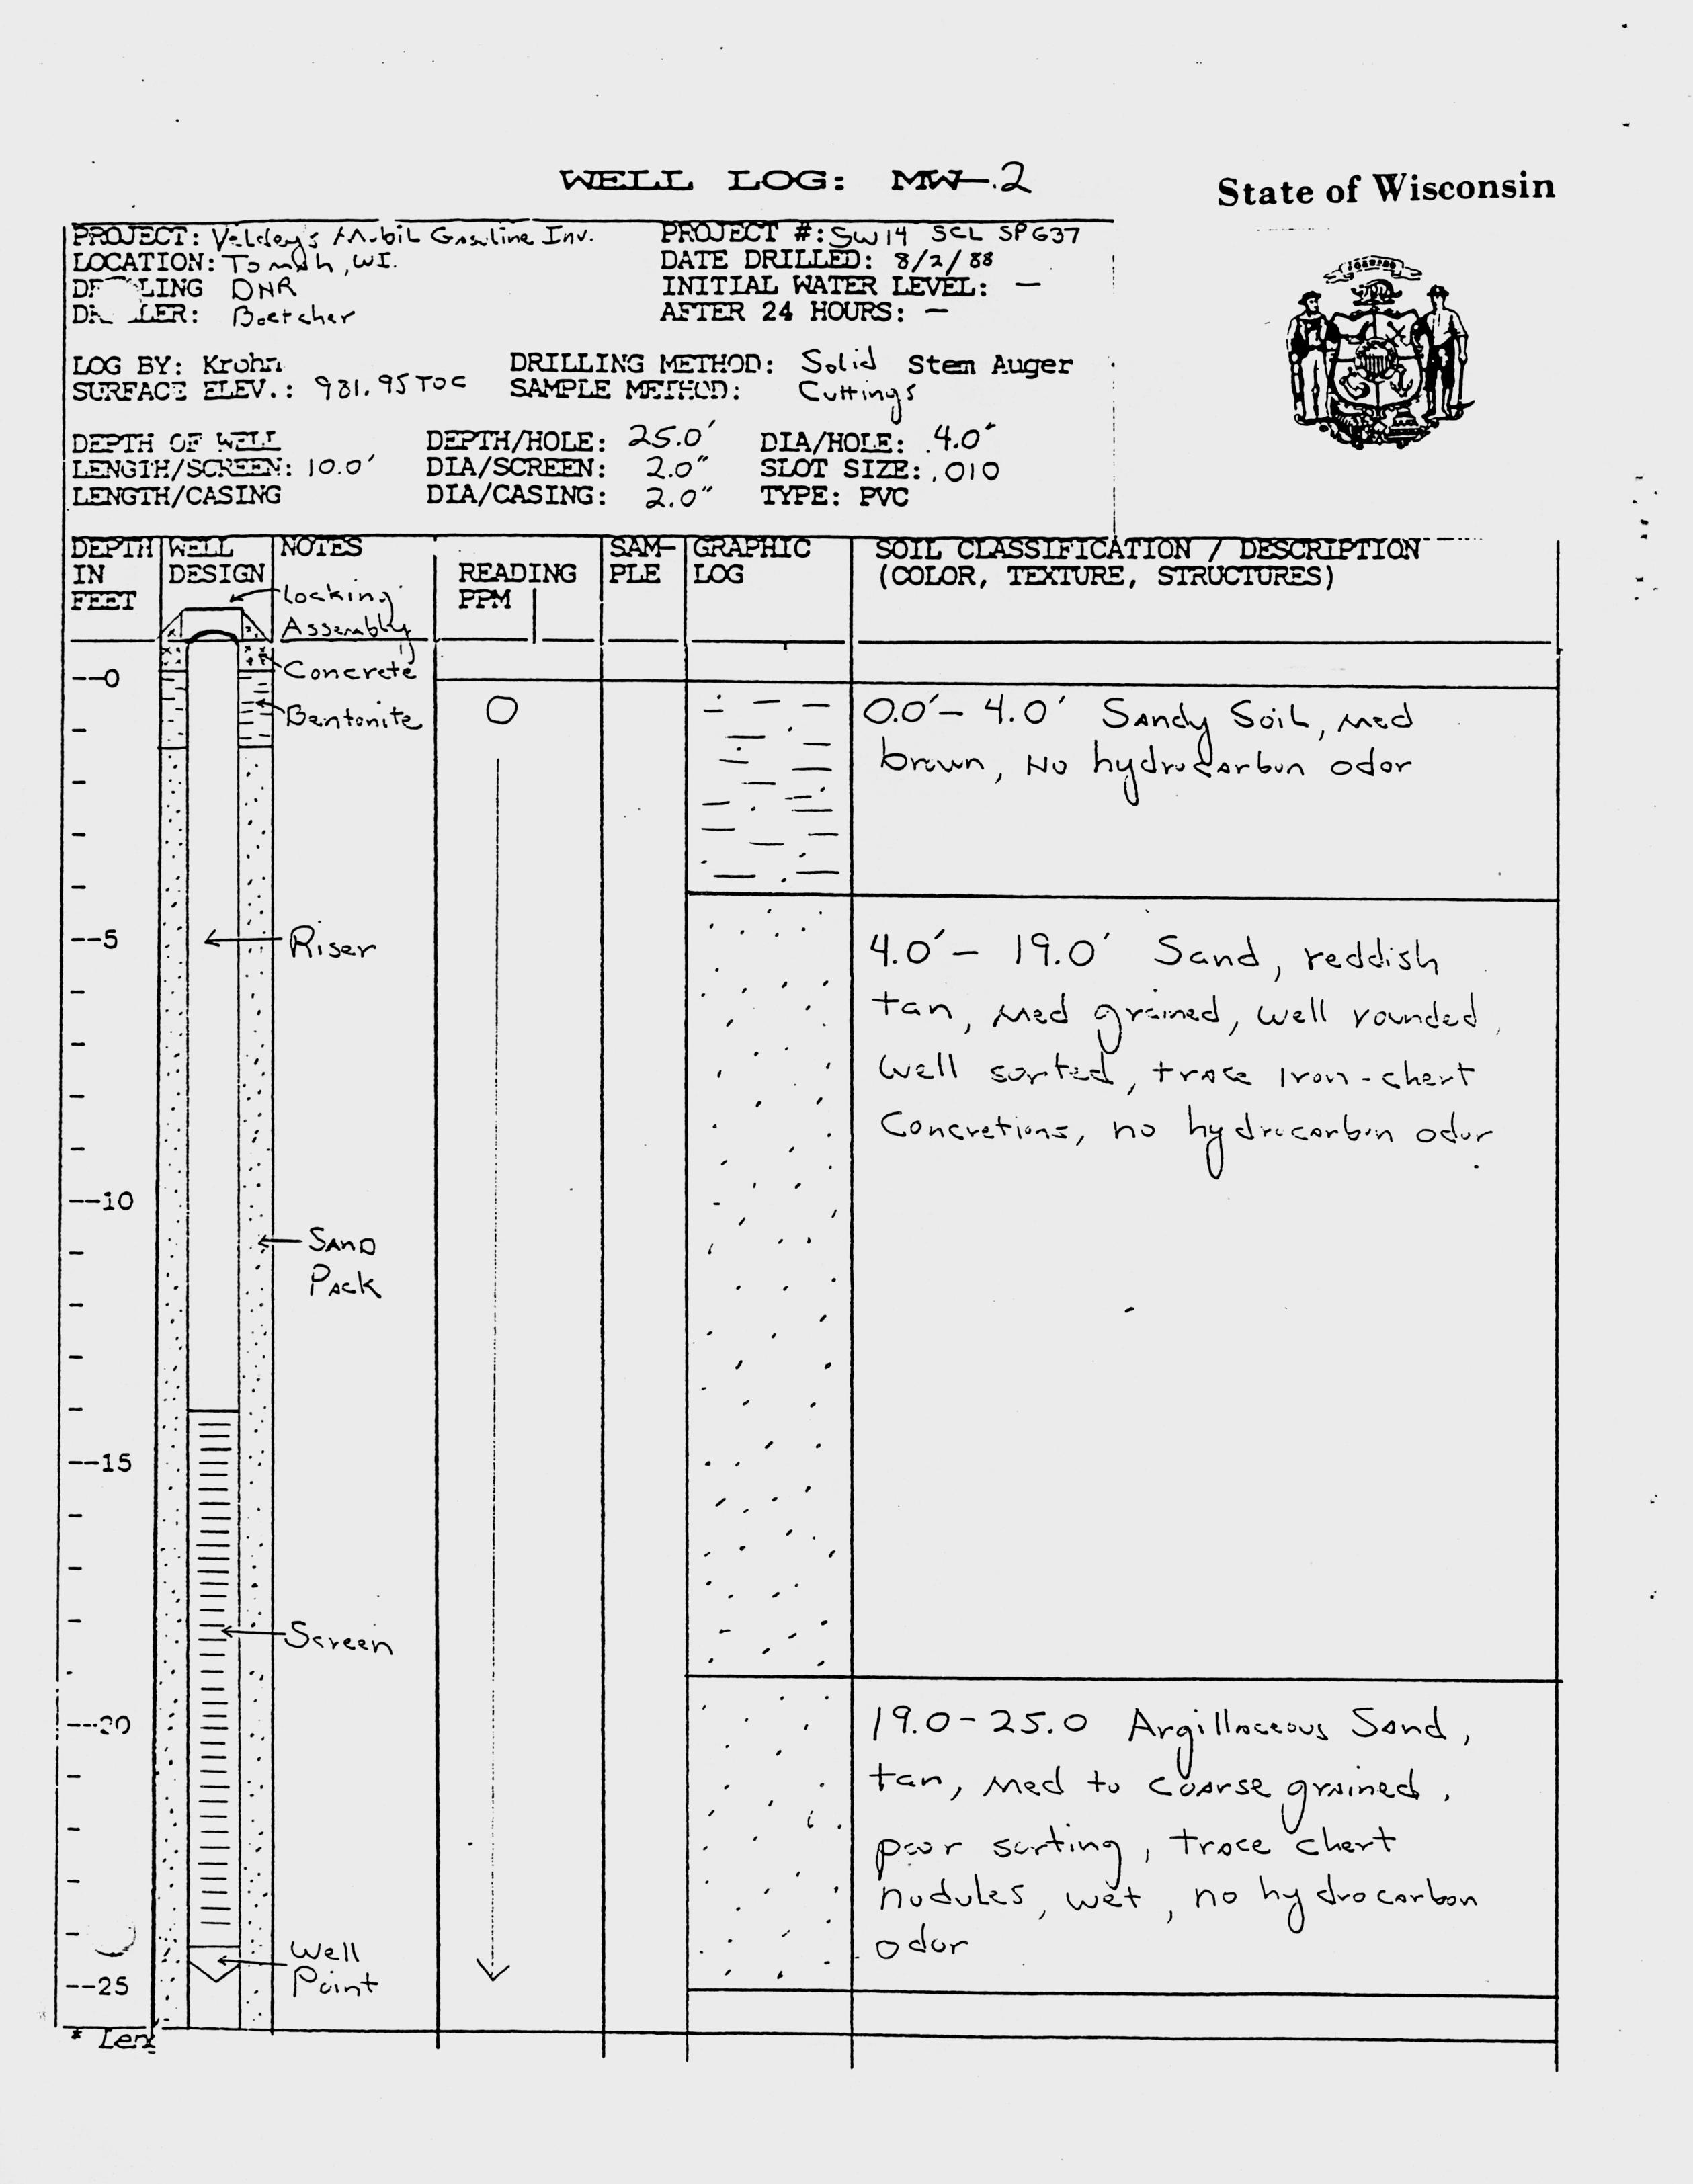 WELL LOG: MW-2
State of Wisconsin
PROJECT: Veldey's Mobil Gasoline Inv. PROJECT #: SW14 SCL SPG37
LOCATION: Tomah, WI. DATE DRILLED: 8/2/88
LING DNR INITIAL WATER LEVEL: —
LER: Boetcher AFTER 24 HOURS: —
LOG BY: Krohn DRILLING METHOD: Solid Stem Auger
SURFACE ELEV.: 981.95 TOC SAMPLE METHOD: Cuttings
DEPTH OF WELL DEPTH/HOLE: 25.0' DIA/HOLE: 4.0"
LENGTH/SCREEN: 10.0' DIA/SCREEN: 2.0" SLOT SIZE: .010
LENGTH/CASING DIA/CASING: 2.0" TYPE: PVC
DEPTH IN FEET
WELL DESIGN
NOTES
READING PPM
SAM-PLE
GRAPHIC LOG
SOIL CLASSIFICATION / DESCRIPTION
(COLOR, TEXTURE, STRUCTURES)
Locking
Assembly
Concrete
--0
Bentonite
0
0.0'- 4.0' Sandy Soil, med
brown, No hydrocarbon odor
--5
Riser
4.0'- 19.0' Sand, reddish
tan, med grained, well rounded,
well sorted, trace Iron-chert
Concretions, no hydrocarbon odor
--10
Sand
Pack
--15
Screen
--20
19.0-25.0 Argillaceous Sand,
tan, med to coarse grained,
poor sorting, trace chert
nodules, wet, no hydrocarbon
odor
Well
Point
--25
* Len